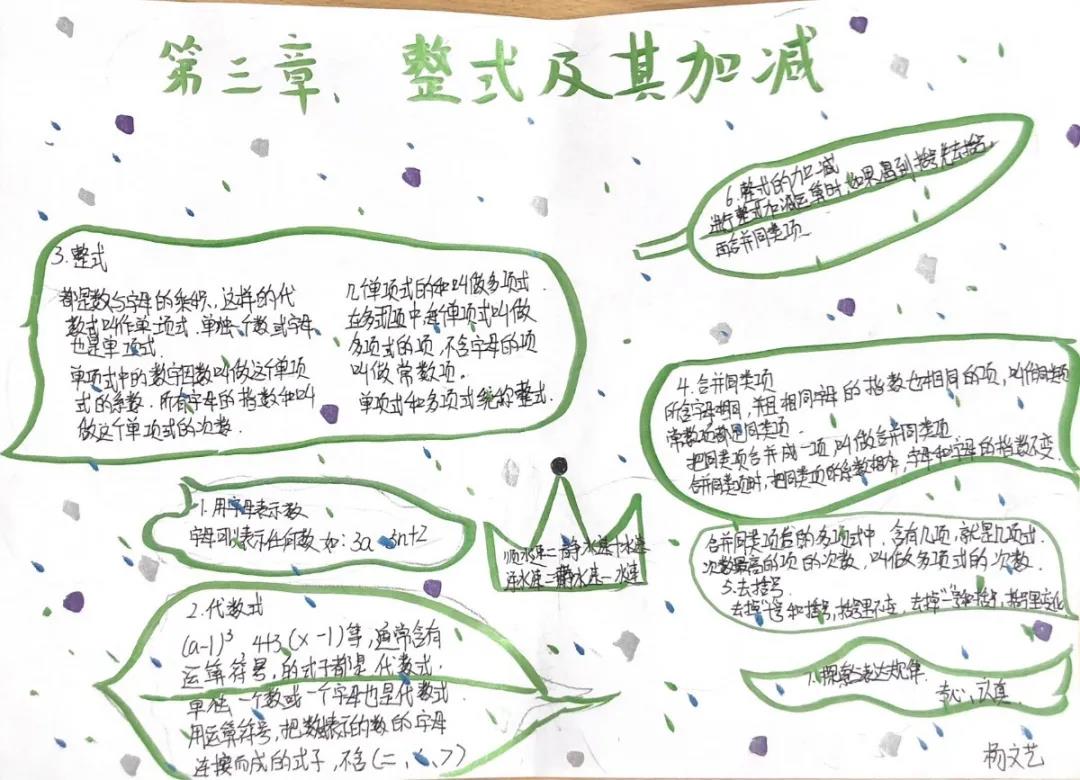 第三章 整式及其加减
1. 用字母表示数
字母可以表示任何数 如:3a 3n+2
2. 代数式
(a-1)³, 4+3(x-1)等,通常含有
运算符号,的式子都是代数式.
单独一个数或一个字母也是代数式
用运算符号,把数和表示的数的字母
连接而成的式子,不含(=、<、>)
3. 整式
都是数与字母的乘积,这样的代
数式叫作单项式.单独一个数或字母
也是单项式.
单项式中的数字因数叫做这个单项
式的系数.所有字母的指数和叫
做这个单项式的次数.
几个单项式的和叫做多项式.
在多式项中,每个单项式叫做
多项式的项,不含字母的项
叫做常数项.
单项式和多项式统称整式.
顺水速=静水速+水速
逆水速=静水速-水速
4. 合并同类项
所含字母相同,并且相同字母的指数也相同的项,叫作同类项
常数项都是同类项.
把同类项合并成一项叫做合并同类项
合并同类项时,把同类项的系数相加,字母和字母的指数不变.
合并同类项后的多项式中,含有几项,就是几项式.
次数最高的项的次数,叫做多项式的次数.
5. 去括号
去掉"+"号和括号,括号里不变,去掉"-"号和括号,括号里变化
6. 整式的加减
进行整式加减运算时,如果遇到括号先去括号,
再合并同类项.
7. 探索表达规律.
专心,认真
杨文艺